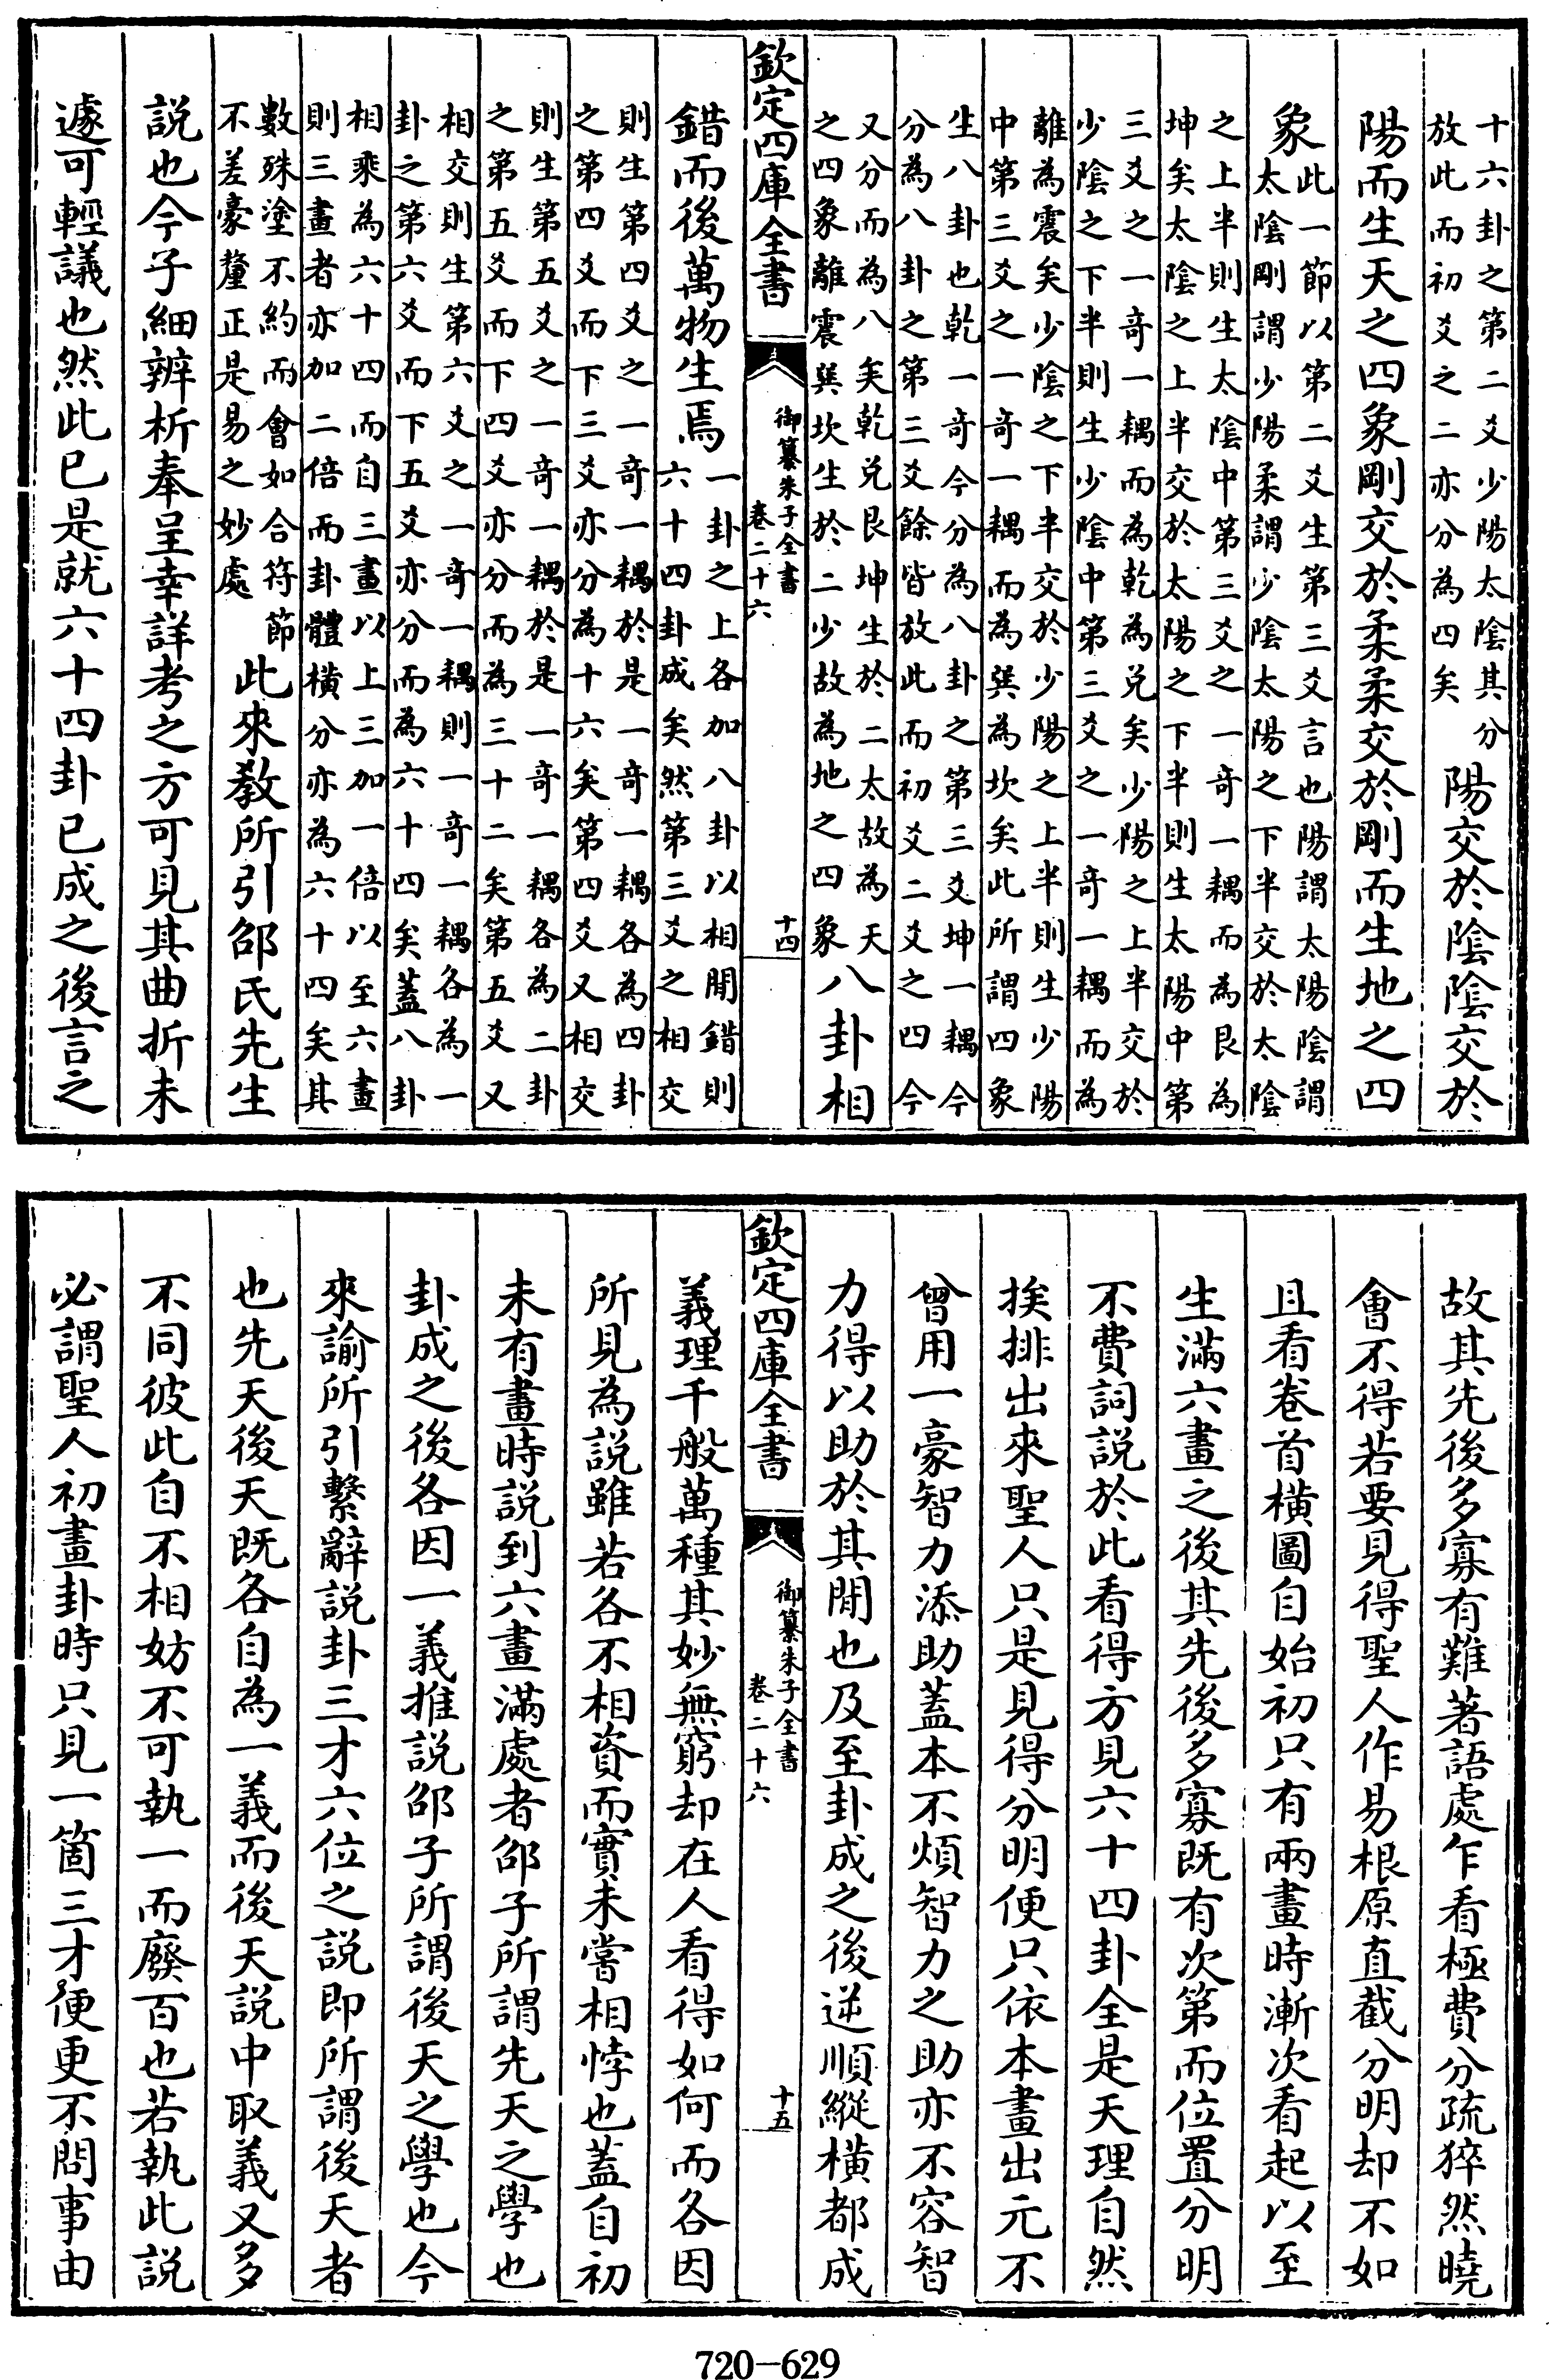 十六卦之第二爻少陽太陰其分
放此而初爻之二亦分為四矣
陽交於陰陰交於
陽而生天之四象剛交於柔柔交於剛而生地之四
象
此一節以第二爻生第三爻言也陽謂太陽陰謂
太陰剛謂少陽柔謂少陰太陽之下半交於太陰
之上半則生太陰中第三爻之一奇一耦而為艮為
坤矣太陰之上半交於太陽之下半則生太陽中第
三爻之一奇一耦而為乾為兌矣少陽之上半交於
少陰之下半則生少陰中第三爻之一奇一耦而為
離為震矣少陰之下半交於少陽之上半則生少陽
中第三爻之一奇一耦而為巽為坎矣此所謂四象
生八卦也乾一奇今分為八卦之第三爻坤一耦今
分為八卦之第三爻餘皆放此而初爻二爻之四今
又分而為八矣乾兌艮坤生於二太故為天
之四象離震巽坎生於二少故為地之四象
八卦相
欽定四庫全書
御纂朱子全書
卷二十六
十四
錯而後萬物生焉
一卦之上各加八卦以相間錯則
六十四卦成矣然第三爻之相交
則生第四爻之一奇一耦於是一奇一耦各為四卦
之第四爻而下三爻亦分為十六矣第四爻又相交
則生第五爻之一奇一耦於是一奇一耦各為二卦
之第五爻而下四爻亦分而為三十二矣第五爻又
相交則生第六爻之一奇一耦則一奇一耦各為一
卦之第六爻而下五爻亦分而為六十四矣蓋八卦
相乘為六十四而自三畫以上三加一倍以至六畫
則三畫者亦加二倍而卦體橫分亦為六十四矣其
數殊塗不約而會如合符節
不差豪釐正是易之妙處
此來教所引邵氏先生
說也今子細辨析奉呈幸詳考之方可見其曲折未
遽可輕議也然此已是就六十四卦已成之後言之
故其先後多寡有難著語處乍看極費分疏猝然曉
會不得若要見得聖人作易根原直截分明却不如
且看卷首橫圖自始初只有兩畫時漸次看起以至
生滿六畫之後其先後多寡既有次第而位置分明
不費詞說於此看得方見六十四卦全是天理自然
挨排出來聖人只是見得分明便只依本畫出元不
曾用一豪智力添助蓋本不煩智力之助亦不容智
力得以助於其間也及至卦成之後逆順縱橫都成
欽定四庫全書
御纂朱子全書
卷二十六
十五
義理千般萬種其妙無窮却在人看得如何而各因
所見為說雖若各不相資而實未嘗相悖也蓋自初
未有畫時說到六畫滿處者邵子所謂先天之學也
卦成之後各因一義推說邵子所謂後天之學也今
來諭所引繫辭說卦三才六位之說即所謂後天者
也先天後天既各自為一義而後天說中取義又多
不同彼此自不相妨不可執一而廢百也若執此說
必謂聖人初畫卦時只見一箇三才便更不問事由
720-629